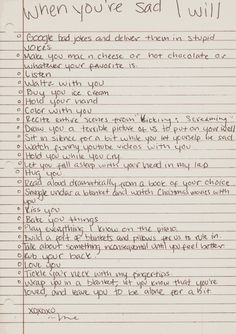 when you're sad I will
Google bad jokes and deliver them in stupid
voices
Make you mac n cheese or hot chocolate or
whatever your favorite is.
Listen
Waltz with you
Buy you ice cream
Hold your hand
Color with you
Recite entire scenes from "Kicking & Screaming"
Draw you a terrible picture of us to put on your wall
Sit in silence for a bit while you let yourself be sad
Watch funny youtube videos with you
Hold you while you cry
Let you fall asleep with your head in my lap
Hug you
Read aloud dramatically from a book of your choice
Snuggle under a blanket and watch Christmas movies with
you
Kiss you
Bake you things
Play everything I know on the piano
Build a fort of blankets and pillows for us to rule in
Talk about something inconsequential until you feel better
Rub your back
Love you
Tickle your neck with my fingertips
Wrap you in a blanket, let you know that you're
loved, and leave you to be alone for a bit
xoxoxo
~me